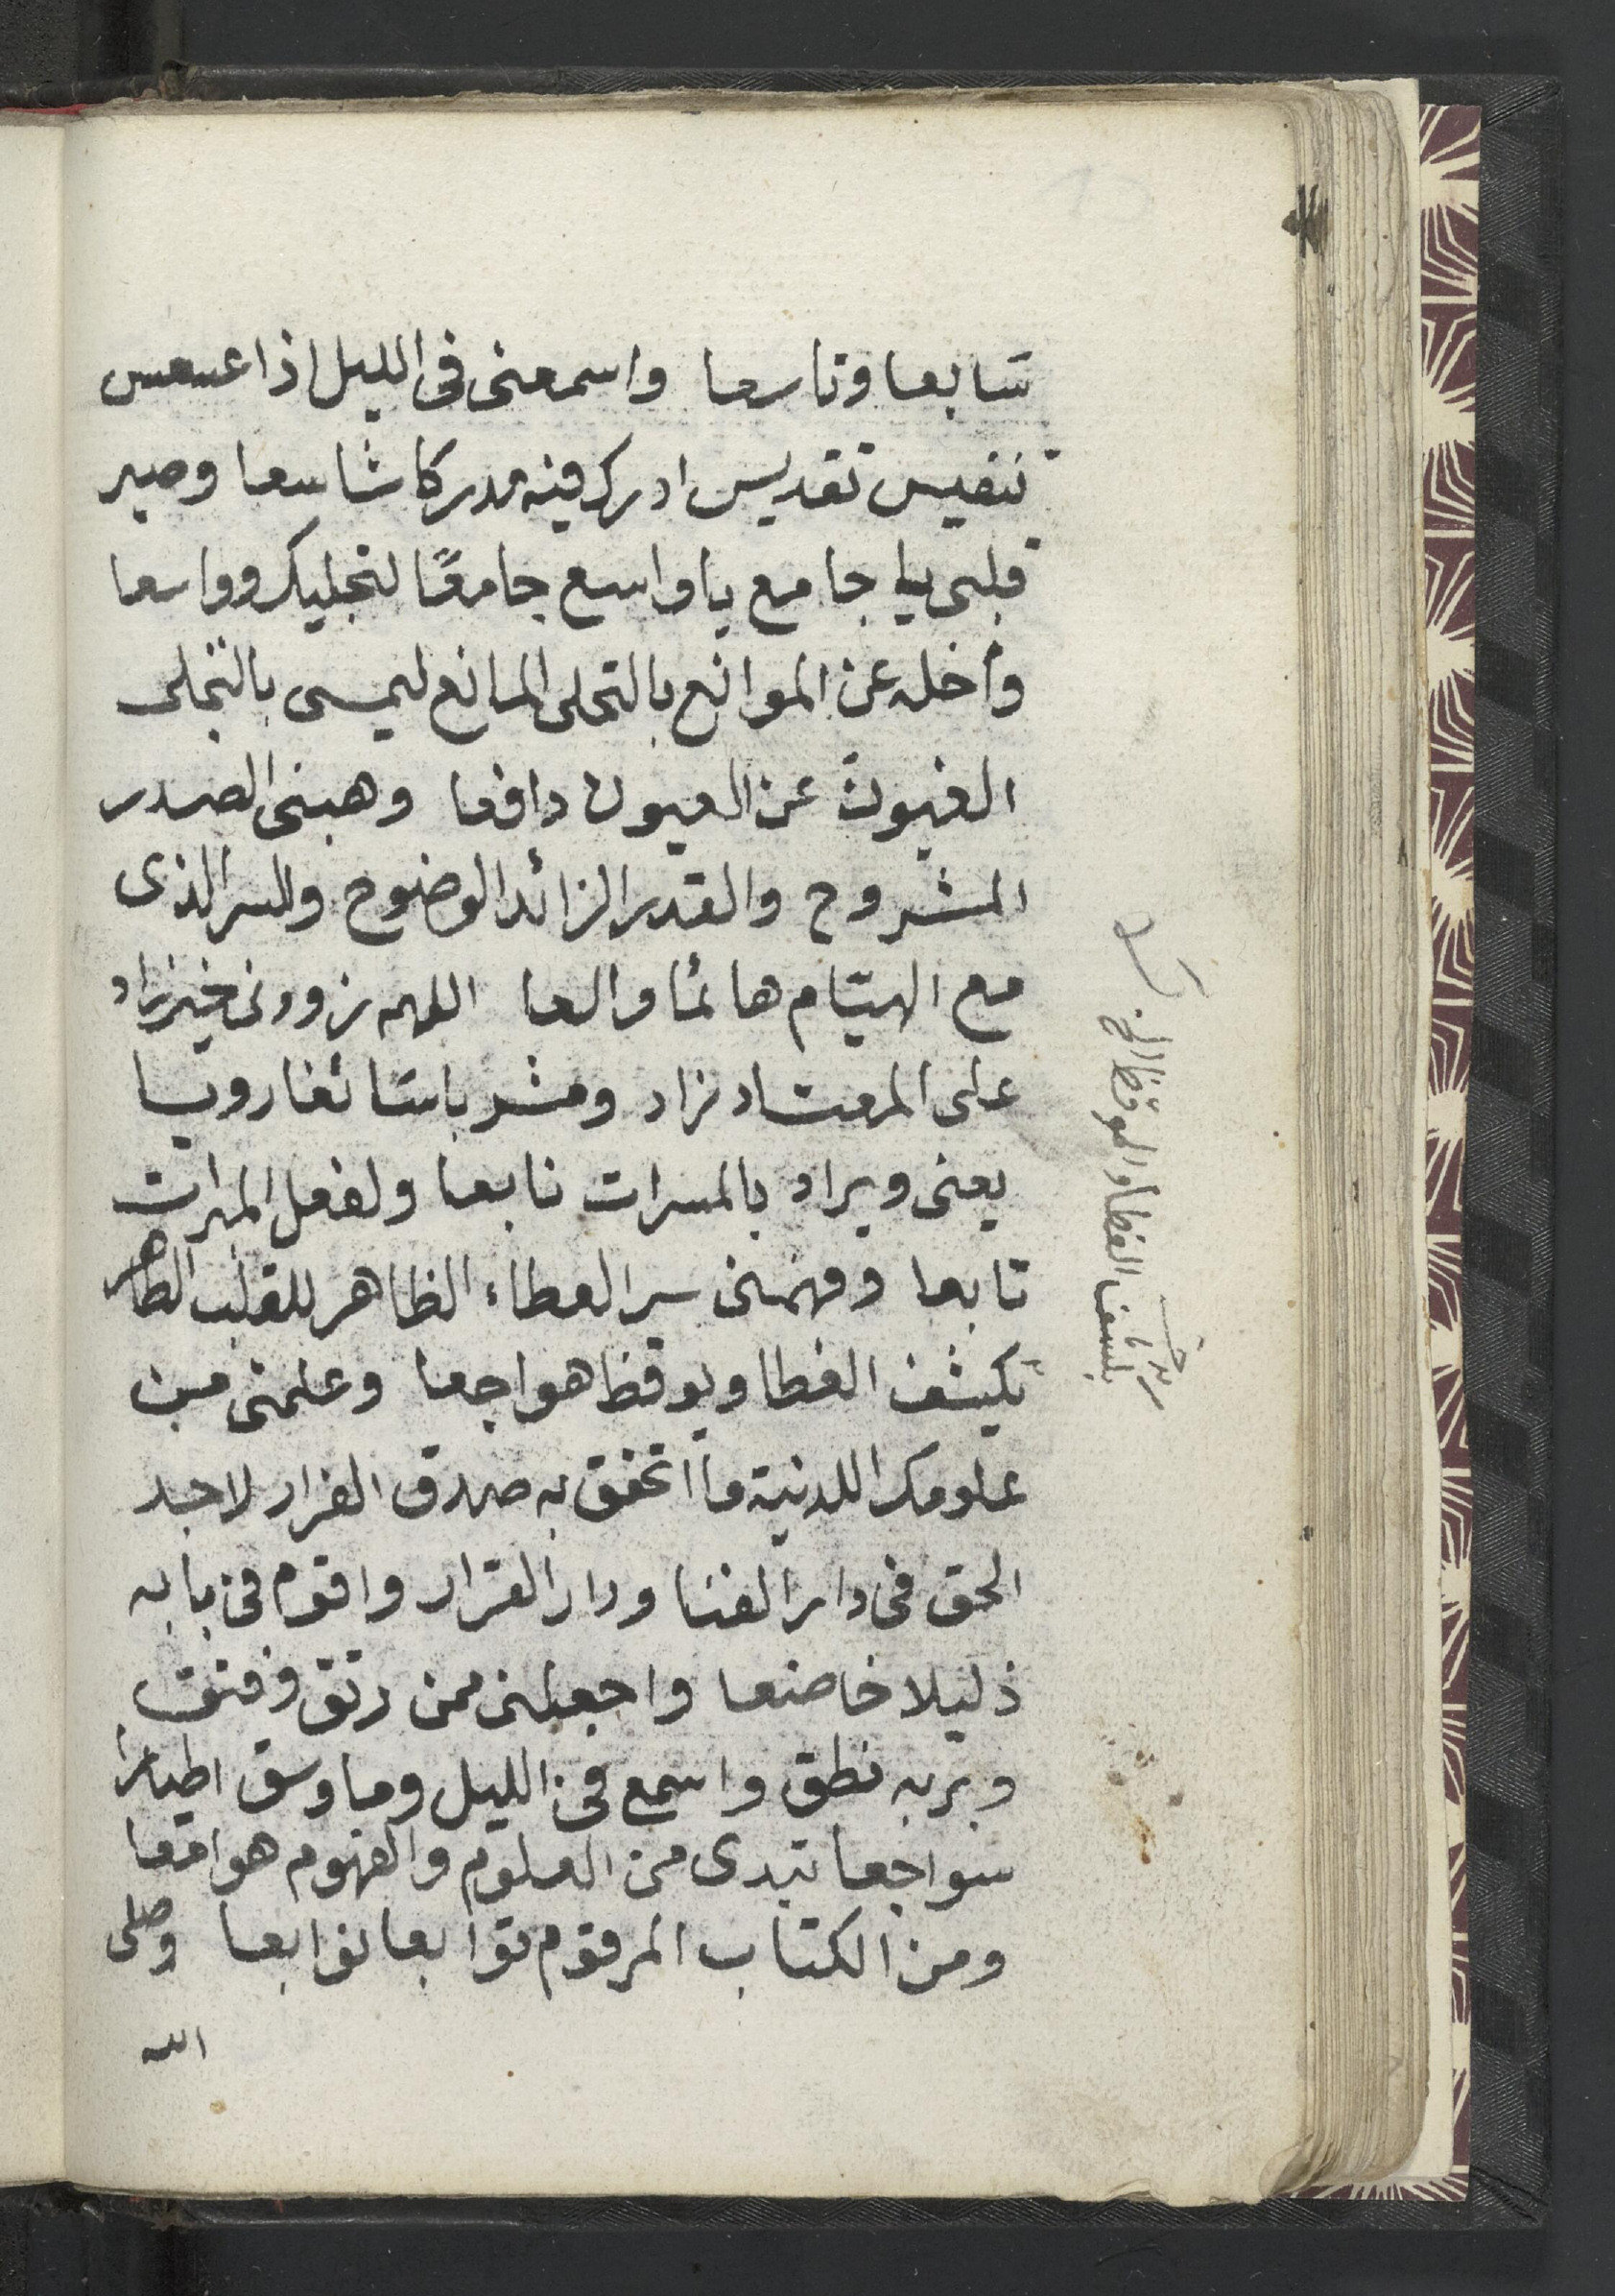 سابعا وتاسعا واسمعنى فى الليل اذا عسعس
تنفيس تقديس ادرك فيه مدركا شاسعا وصير
قلبى يا جامع يا واسع جامعًا لتجليك وواسعا
وأخله عن الموانع بالتحلى المانع ليمسى بالتجلى
الغيون عن العيون دافعا وهبنى الصدر
المشروح والقدر الزائد الوضوح والسر الذى
مع الهيام هائما والعا اللهم زودنى خير زاد
على المعتاد زاد ومشربا سائغا رويا
يعنى ويراد بالمسرات نابعا ولفعل المبرات
تابعا وفهمنى سر العطاء الظاهر للقلب الطاهر
بكشف الغطا ويوقظ هواجعا وعلمنى من
علومك اللدنية ما اتحقق به صدق الفرار لاجد
الحق فى دار الفنا ودار القرار واقوم فى بابه
ذليلا خاضعا واجعلنى ممن رتق وفتق
وبربه نطق واسمع فى الليل وما وسق اطيارا
سواجعا تبدى من العلوم والفهوم هوامعا
ومن الكتاب المرقوم توابعا نوابعا وصلى
الله
بكشف الغطا والموقظ الى